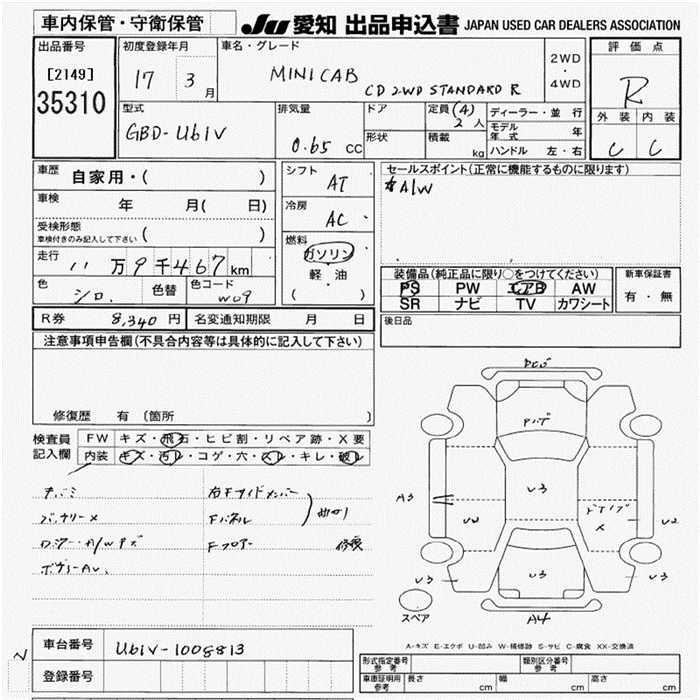 車内保管・守衛保管
JU 愛知 出品申込書 JAPAN USED CAR DEALERS ASSOCIATION
出品番号
[2149]
35310
初度登録年月
17 3月
車名・グレード
MINICAB
CD 2WD STANDARD R
2WD
・
4WD
評価点
R
外装 内装
C C
型式
GBD-U61V
排気量
0.65 CC
ドア
形状
定員 (4)
2 人
積載
kg
ディーラー・並 行
モデル年式 年
ハンドル 左・右
車歴 自家用・( )
車検 年 月( 日)
受検形態
車検付きのみ記入して下さい ( )
走行 11万9千467km
色 シロ. 色替 色コード W09
シフト AT
冷房 AC
燃料
ガソリン
軽・油
( )
セールスポイント(正常に機能するものに限ります)
A/W
装備品(純正品に限り○をつけてください)
PS PW エアB AW
SR ナビ TV カワシート
新車保証書
有・無
R券 8,340 円 名変通知期限 月 日
後日品
注意事項申告欄(不具合内容等は具体的に記入して下さい)
修復歴 有 〔箇所 〕
検査員記入欄
FW キズ・飛石・ヒビ割・リペア跡・X要
内装 キズ・汚レ・コゲ・穴・スレ・キレ・破レ
右Fサイドメンバー
Fパネル
曲がり
Fフロアー 修復
バッテリーX
A3
U3
U2
U2
U3
U3
U3
A4
スペア
A-キズ E-エクボ U-凹み W-補修跡 S-サビ C-腐食 XX-交換済
車台番号 U61V-1008813
登録番号
N
形式指定番号
参考
類別区分番号
参考
車庫証明用
参考
長さ cm 幅 cm 高さ cm